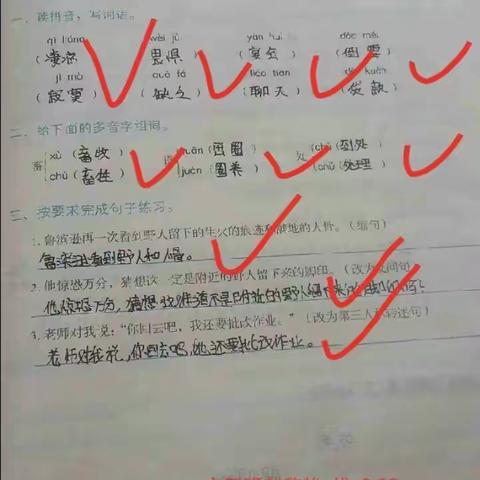 一、读拼音，写词语。
qī liáng wèi jù yàn huì dǎo méi
（凄凉 （畏惧 （宴会 （倒霉
jì mò quē fá liáo tiān
（寂寞 ） （缺乏 ） （聊天 ） （贷款 ）
二、给下面的多音字组词。
畜 xù（畜牧 ） quān（圈圈 ） 处 chù（到处
chù（畜牲 ） juàn（圈养 ） chǔ（处理 ）
三、按要求完成句子练习。
1. 鲁滨逊再一次看到野人留下的生火的痕迹和满地的人骨。（缩句）
鲁滨逊看到野人和人骨。
2. 他惊恐万分，猜想这一定是附近的野人留下来的脚印。（改为反问句）
他惊恐万分，猜想这难道不是附近的野人留下来的脚印吗？
3. 老师对我说：“你回去吧，我还要批改作业。”（改为第三人称转述句）
老师对我说，你回去吧，她还要批改作业。